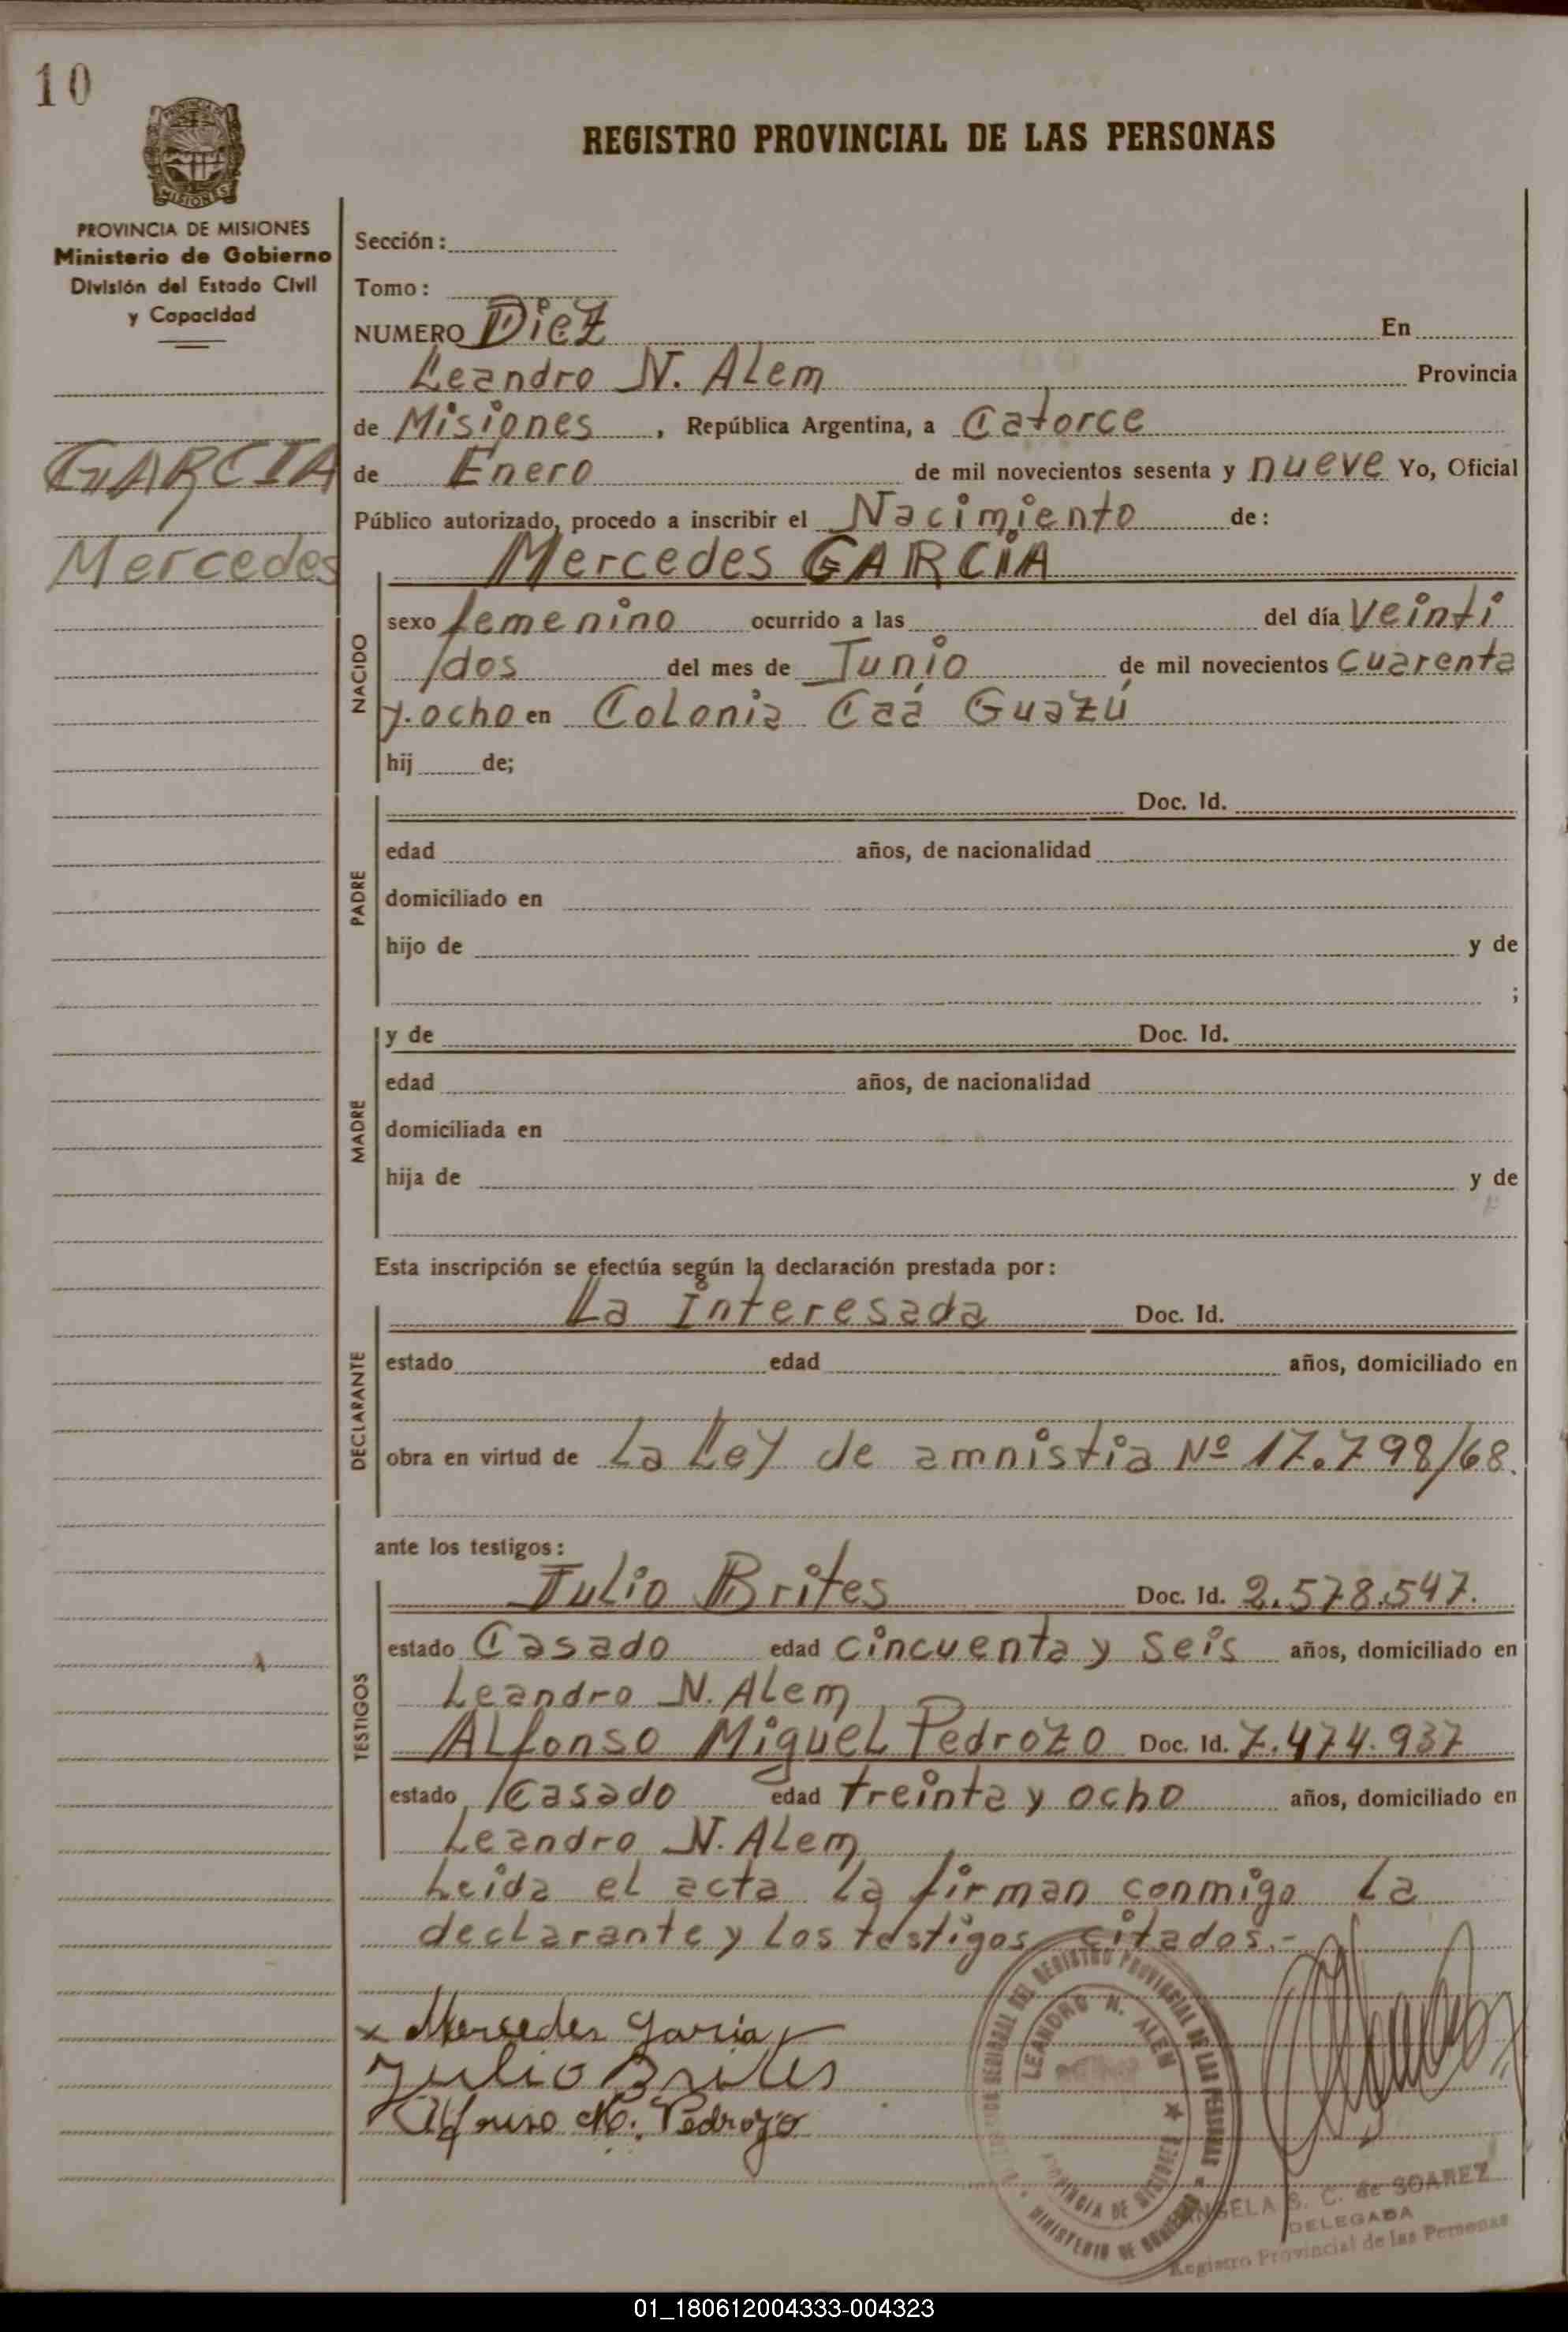 10
MISIONES
PROVINCIA DE MISIONES
Ministerio de Gobierno
División del Estado Civil
y Capacidad
GARCIA
Mercedes
REGISTRO PROVINCIAL DE LAS PERSONAS
Sección:
Tomo:
NUMERO Diez En
Leandro N. Alem Provincia
de Misiones, República Argentina, a Catorce
de Enero de mil novecientos sesenta y nueve Yo, Oficial
Público autorizado, procedo a inscribir el Nacimiento de:
Mercedes GARCÍA
NACIDO
sexo femenino ocurrido a las del día Veinti
dos del mes de Junio de mil novecientos cuarenta
y ocho en Colonia Caá Guazú
hij de;
PADRE
Doc. Id.
edad años, de nacionalidad
domiciliado en
hijo de y de
;
MADRE
y de Doc. Id.
edad años, de nacionalidad
domiciliada en
hija de y de
Esta inscripción se efectúa según la declaración prestada por:
DECLARANTE
La interesada Doc. Id.
estado edad años, domiciliado en
obra en virtud de la Ley de amnistia Nº 17.798/68.
ante los testigos:
TESTIGOS
Julio Brites Doc. Id. 2.578.547.
estado Casado edad cincuenta y seis años, domiciliado en
Leandro N. Alem
Alfonso Miguel Pedrozo Doc. Id. 7.474.937
estado Casado edad treinta y ocho años, domiciliado en
Leandro N. Alem
Leida el acta la firman conmigo la
declarante y los testigos citados.-
x Mercedes Garcia
Julio Brites
Alfonso M. Pedrozo
REGISTRO PROVINCIAL DE LAS PERSONAS
LEANDRO N. ALEM
PROVINCIA DE MISIONES
MINISTERIO DE GOBIERNO
ANGELA S. C. de SOAREZ
DELEGADA
Registro Provincial de las Personas
01_180612004333-004323